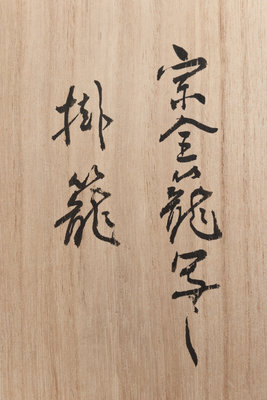 宗全籠写し
掛籠